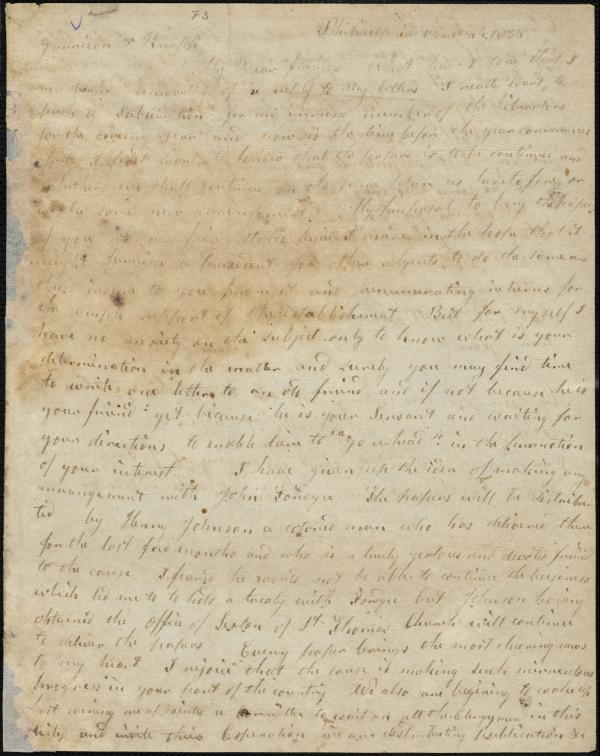 73
Philadelphia 1834
Garrison & Knapp
My Dear friends What have I done that I
am unworthy of a reply to my letters I really want to
push a Subscription for an increased number of the Liberators
for the coming year and now is the time before the year commences
but I first want to know that the papers is to be continued and
whether we shall continue on the same plan as heretofore or
make some new arrangement. My proposal to buy the papers
of you at a fair price I made in the hope that it
might furnish a precedent for other Agents to do the same and
thus insure to you prompt and remunerating returns for
the ample support of the establishment But for myself I
have no anxiety on the subject only to know what is your
determination in the matter and surely you may find time
to write one letter to an old friend and if not because he is
your friend yet because he is your Servant and waiting for
your directions to enable him to "go ahead" in the promotion
of your interest I have given up the idea of making any
arrangement with John The papers will be distribu
ted by Henry Johnson a colored man who has delivered them
for the last few months and who is a truly zealous and devoted friend
to the cause I feared he would not be able to continue the business
which led me to hold a treaty with but Johnson having
obtained the office of Sexton of St Thomas Church will continue
to deliver the papers Every paper brings the most cheering news
to my heart I rejoice that the cause is making such miraculous
progress in your part of the country We also are begining to wake up
last evening we appointed a committee to wait on all the Clergymen in this
city and invite their Coperation we are distributing Publications &c